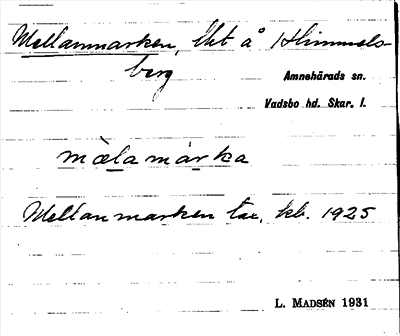 Mellanmarken, lht å Himmels-
berg
Amnehärads sn.
Vadsbo hd. Skar. l.
mæ̀lamárka
Mellanmarken tax, kb. 1925
L. MADSÉN 1931